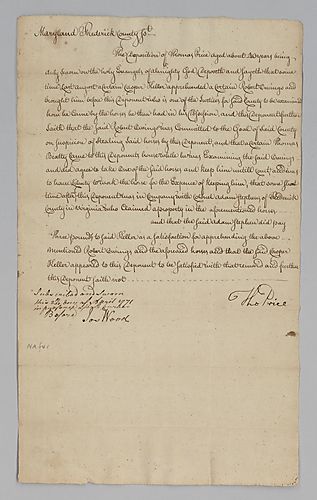 Maryland Frederick County Sc.
The Deposition of Thomas Price aged about years being
duly sworn on the holy Evangels of Almighty God Deposeth and sayeth that some
time last august a certain Casper Keller apprehended a certain Robert Owings and
brought him before this Deponent who is one of the Justices for said County to be examined
how he came by the horses he then had in his possession, and this Deponent further
saith that the said Robert Owings was Committed to the Goal of said County
on suspicion of stealing said horses by this Deponent, and that a certain Thomas
Beatty came to this Deponents house while he was Examining the said Owings
and did agree to take one of the said horses and keep him untill court
to have Liberty to work the horse for the Expence of keeping him, that some short
time after this Deponent was in Company with Adam Stephen of Frederick
County in Virginia who Claimed a property in the aforementioned horses
and that the said Adam Stephen did pay
Three pounds to said Keller as a satisfaction for apprehending the above
Mentioned Robert Owings and the aforesaid horses and that the said Casper
Keller appeared to this Deponent to be satisfied with that reward and further
this Deponent saith not
Subscribed and Sworn
this day of April 1771
Before
Jos Wood
Tho Price